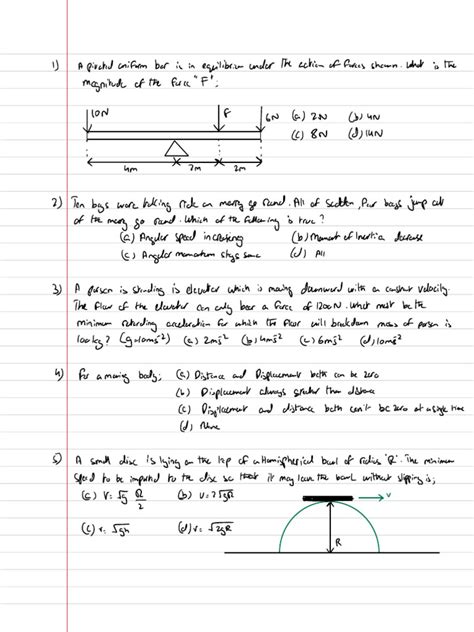 1) A pivoted uniform bar is in equilibrium under the action of forces shown. What is the
magnitude of the force "F";
10N F 6N (a) 2N (b) 4N
(c) 8N (d) 14N
4m 2m 2m
2) Ten boys were taking ride on merry go round. All of sudden, four boys jump out
of the merry go round. Which of the following is true?
(a) Angular speed increasing (b) Moment of Inertia decrease
(c) Angular momentum stays same (d) All
3) A person is standing is elevator which is moving downward with an constant velocity.
The floor of the elevator can only bear a force of 1200N. What must be the
minimum retarding acceleration for which the floor will breakdown mass of person is
100kg? (g=10ms⁻²) (a) 2ms⁻² (b) 4ms⁻² (c) 6ms⁻² (d) 10ms⁻²
4) For a moving body; (a) Distance and Displacement both can be zero
(b) Displacement always greater than distance
(c) Displacement and distance both can't be zero at a single time
(d) None
5) A small disc is lying on the top of a Hemispherical bowl of radius 'R'. The minimum
speed to be imparted to the disc so that it may leave the bowl without slipping is;
(a) V = √g R/2 (b) V = 2√gR
v
(c) v = (d) v = √2gR
R